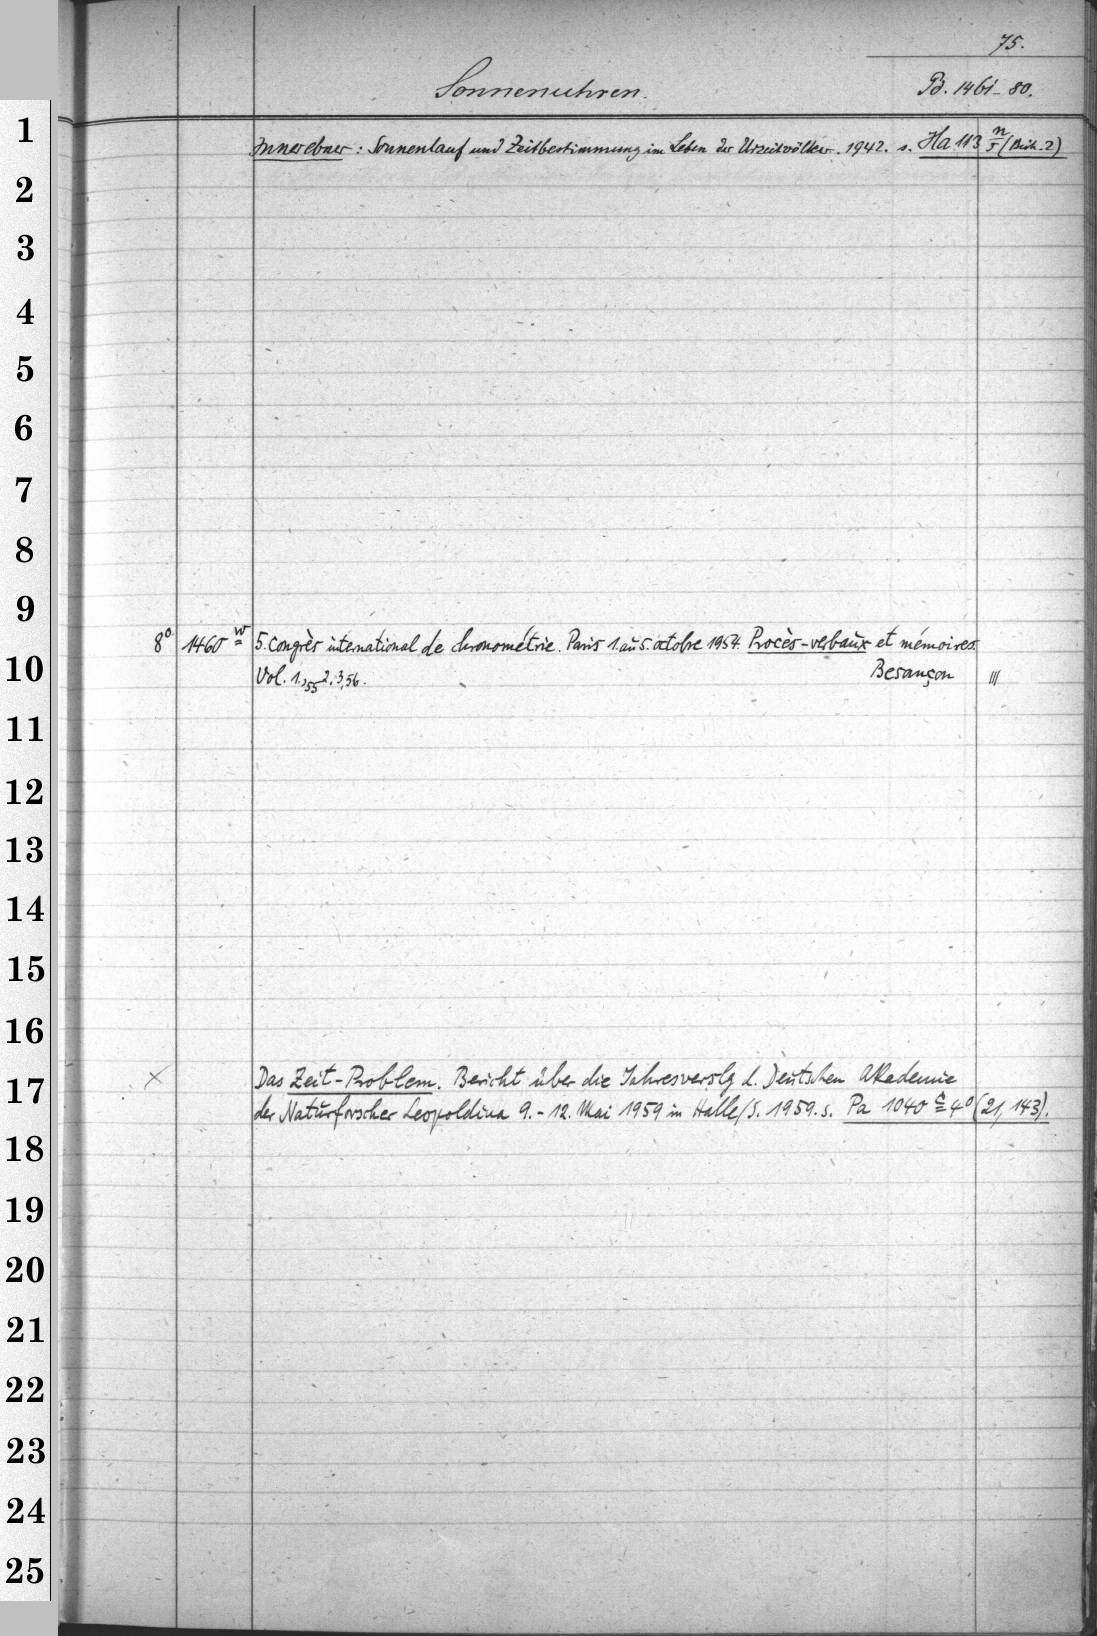 75.
Sonnenuhren.
Pd. 1461-80.
1
Innerebner: Sonnenlauf und Zeitbestimmung im Leben der Urzeitvölker. 1942. s. Ha 113 n/5 (Bish. 2)
2
3
4
5
6
7
8
9
8° 1460 w 5. Congrès international de chronométrie. Paris 1. au 5. octobre 1954. Procès-verbaux et mémoires.
10
Vol. 1.,55 2.3,56. Besançon III
11
12
13
14
15
16
x Das Zeit-Problem. Bericht über die Jahresverslg d. Deutschen Akademie
17
der Naturforscher Leopoldina 9.-12. Mai 1959 in Halle/S. 1959. s. Pa 1040 c 4° (21, 143).
18
19
20
21
22
23
24
25